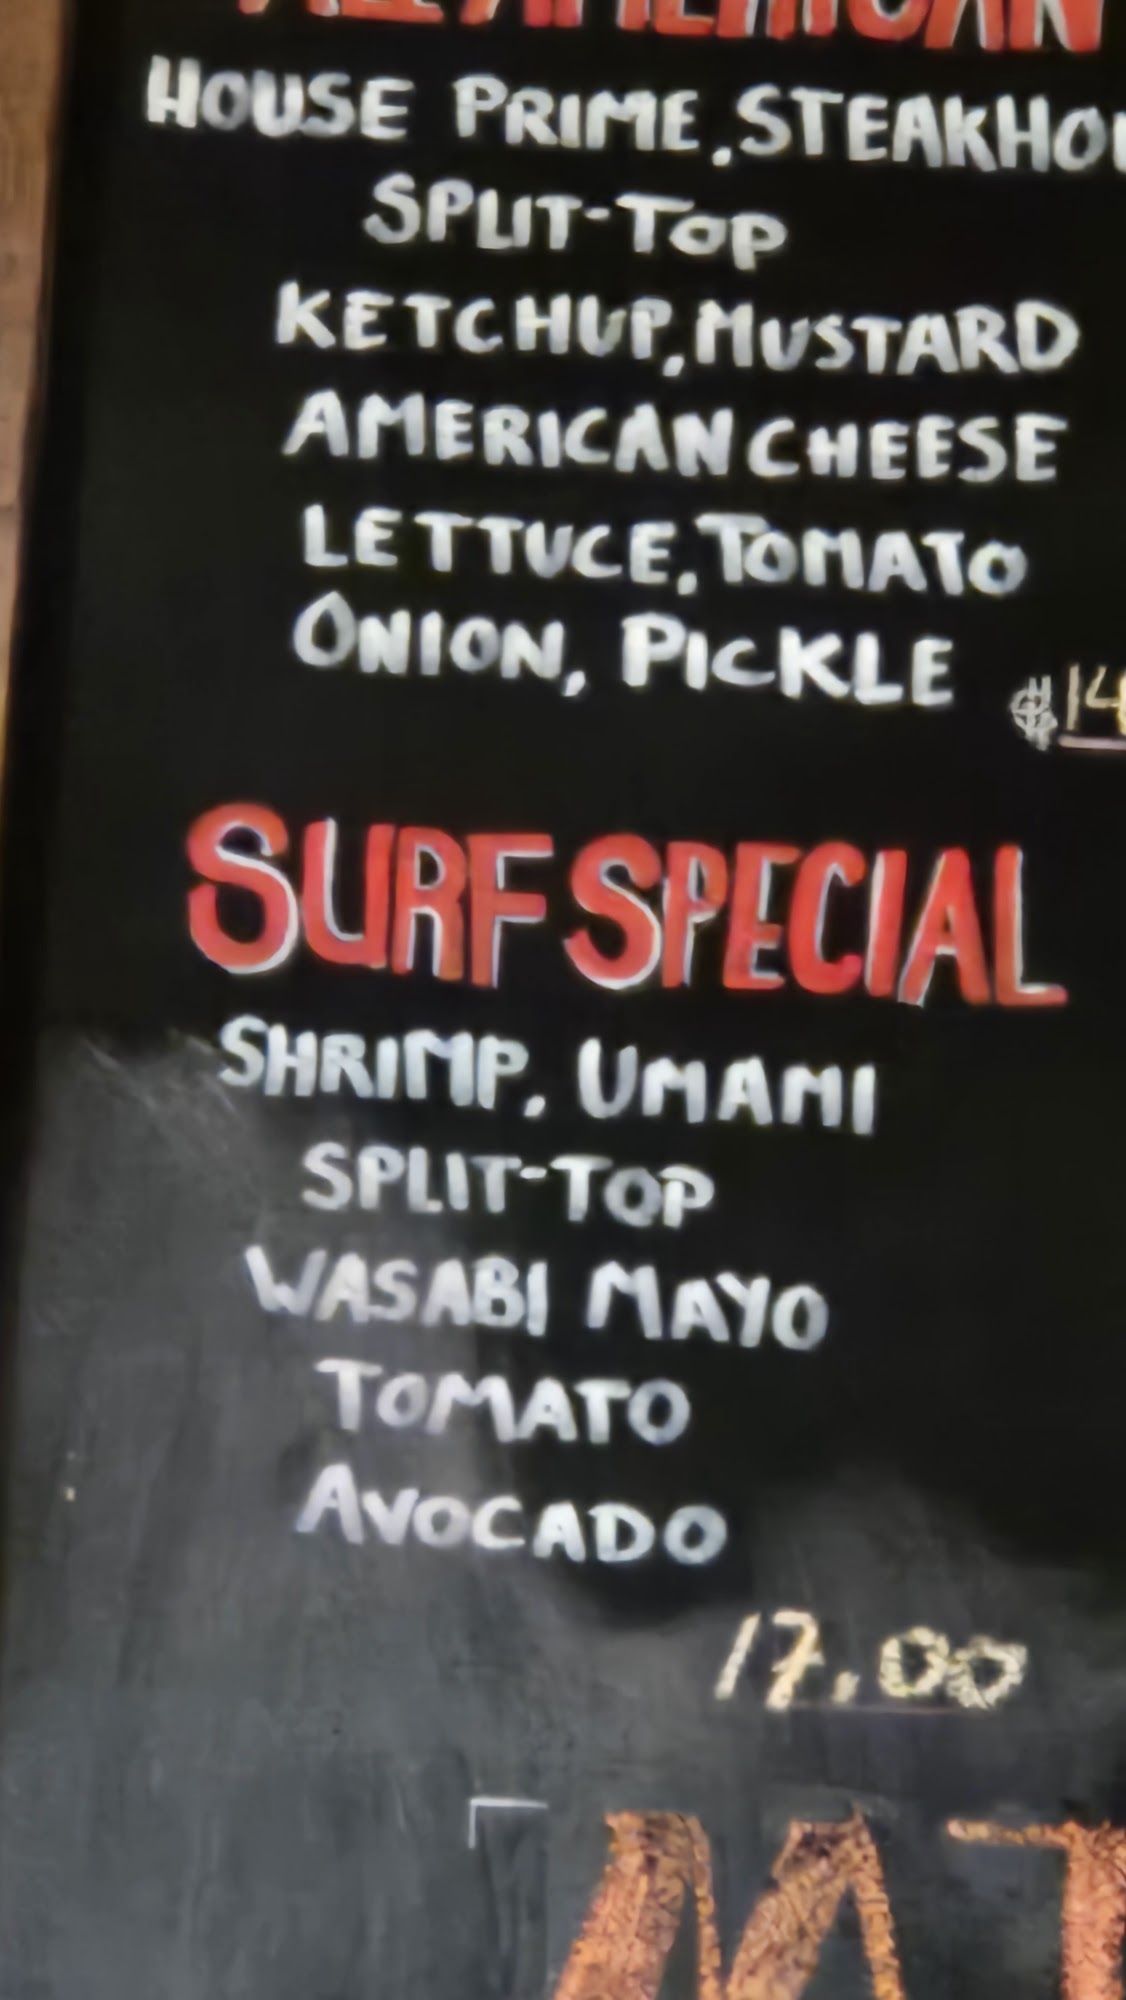 AMERICAN
HOUSE PRIME, STEAKHOU
SPLIT-TOP
KETCHUP, MUSTARD
AMERICAN CHEESE
LETTUCE, TOMATO
ONION, PICKLE
$14
SURF SPECIAL
SHRIMP, UMAMI
SPLIT-TOP
WASABI MAYO
TOMATO
AVOCADO
17.00